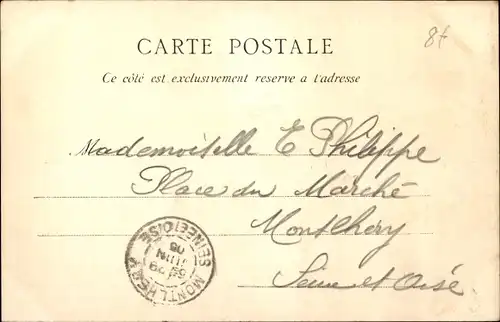 8f
CARTE POSTALE
Ce côté est exclusivement reserve a l'adresse
Mademoiselle E Philippe
Place du Marché
Montlhéry
Seine et Oise
MONTLHERY
29
JUIN
05
SEINE ET OISE